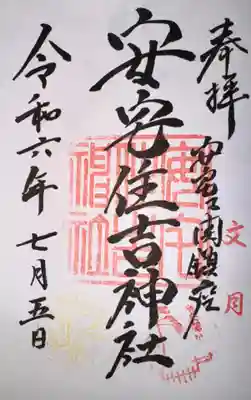 奉拝
安宅関鎮座
文月
安宅住吉神社
令和六年七月五日